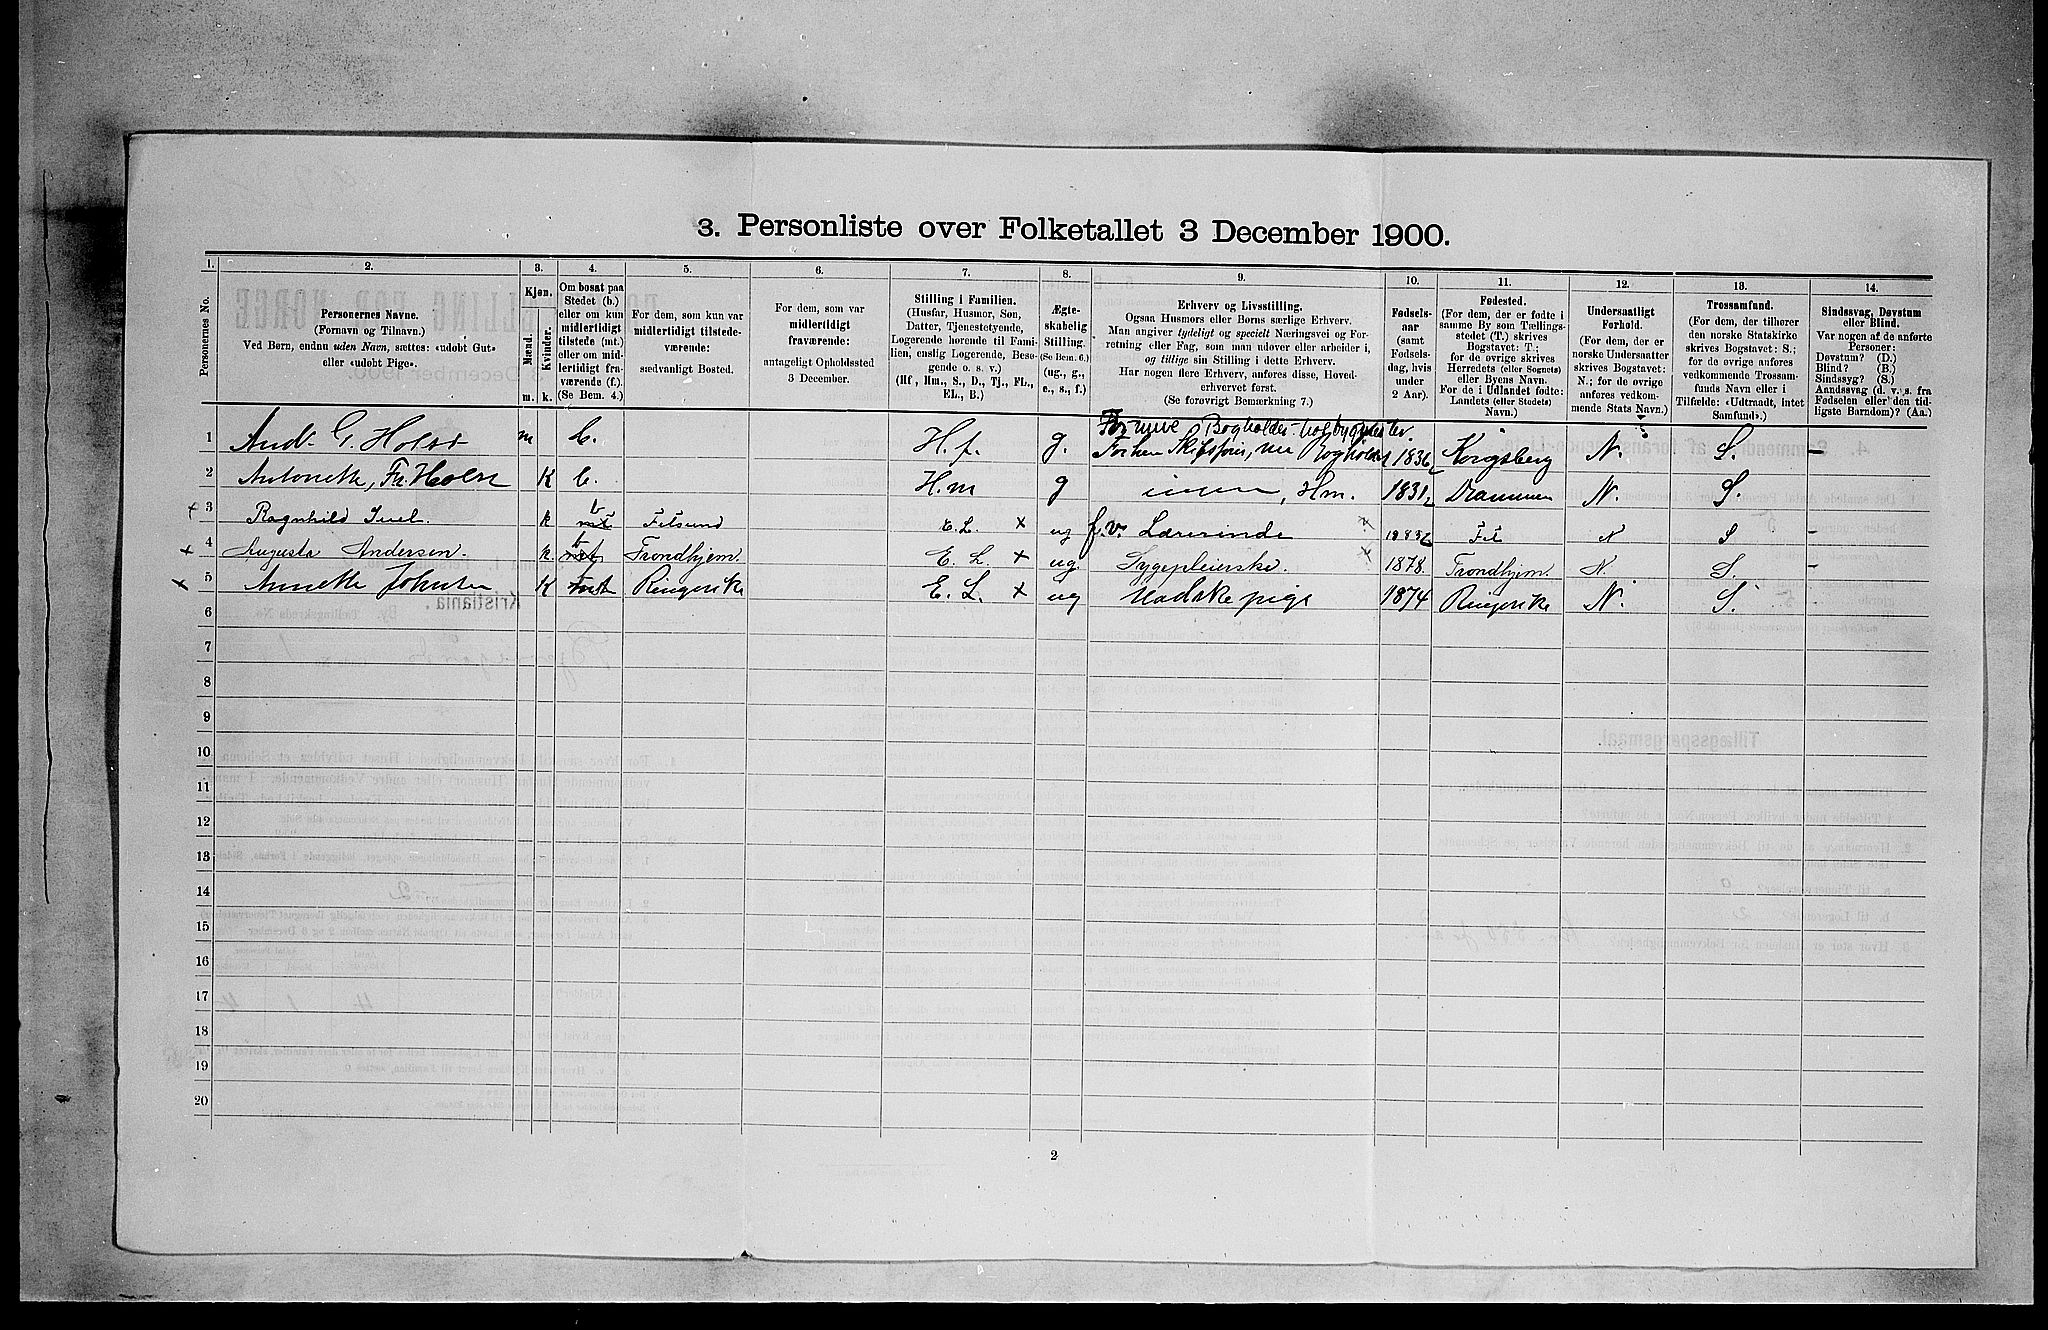 3. Personliste over Folketallet 3 December 1900.
1. 2. 3. 4. 5. 6. 7. 8. 9. 10. 11. 12. 13. 14.
Personernes No.
Personernes Navne.
(Fornavn og Tilnavn.)
Ved Børn, endnu uden Navn, sættes: «udøbt Gut»
eller «udøbt Pige».
Kjøn.
Mænd. Kvinder.
m. k.
Om bosat paa
Stedet (b.)
eller om kun
midlertidigt
tilstede (mt.)
eller om mid-
lertidigt fra-
værende (f.).
(Se Bem. 4.)
For dem, som kun var
midlertidigt tilstede-
værende:
sædvanligt Bosted.
For dem, som var
midlertidigt
fraværende:
antageligt Opholdssted
3 December.
Stilling i Familien.
(Husfar, Husmor, Søn,
Datter, Tjenestetyende,
Logerende hørende til Fami-
lien, enslig Logerende, Besø-
gende o. s. v.)
(Hf, Hm., S., D., Tj., FL.,
EL., B.)
Ægte-
skabelig
Stilling.
(Se Bem. 6.)
(ug., g.,
e., s., f.)
Erhverv og Livsstilling.
Ogsaa Husmors eller Børns særlige Erhverv.
Man angiver tydeligt og specielt Næringsvei og For-
retning eller Fag, som man udøver eller arbeider i,
og tillige sin Stilling i dette Erhverv.
Har nogen flere Erhverv, anføres disse, Hoved-
erhvervet først.
(Se forøvrigt Bemærkning 7.)
Fødsels-
aar
(samt
Fødsels-
dag, hvis
under
2 Aar).
Fødested.
(For dem, der er fødte i
samme By som Tællings-
stedet (T.) skrives
Bogstavet: T.;
for de øvrige skrives
Herredets (eller Sognets)
eller Byens Navn.
For de i Udlandet fødte:
Landets (eller Stedets)
Navn.)
Undersaatligt
Forhold.
(For dem, der er
norske Undersaatter
skrives Bogstavet:
N.; for de øvrige
anføres vedkom-
mende Stats Navn.)
Trossamfund.
(For dem, der tilhører
den norske Statskirke
skrives Bogstavet: S.;
for de øvrige anføres
vedkommende Trossam-
funds Navn eller i
Tilfælde: «Udtraadt, intet
Samfund».)
Sindssvag, Døvstum
eller Blind.
Var nogen af de anførte
Personer:
Døvstum? (D.)
Blind? (B.)
Sindssyg? (S.)
Aandssvag (d. v. s. fra
Fødselen eller den tid-
ligste Barndom)? (Aa.)
1 And. G. Holst m b. H. f. g. 1836 Kongsberg N. S. –
2 Antonette, Fr. Holst K b. H. m g , Hm. 1831 Drammen N. S.
3 Ragnhild Juel. k b mt E. L. x ug f.v. Lærerinde N S –
4 Augusta Andersen. k. b mt Trondhjem. E. L. x ug. Sygepleierske. 1878. Trondhjem. N. S. –
5 Annette K b mt Ringerike E. L. x ug Vadskepige 1874 Ringerike N. S. –
6
7
8
9
10
11
12
13
14
15
16
17
18
19
20
2